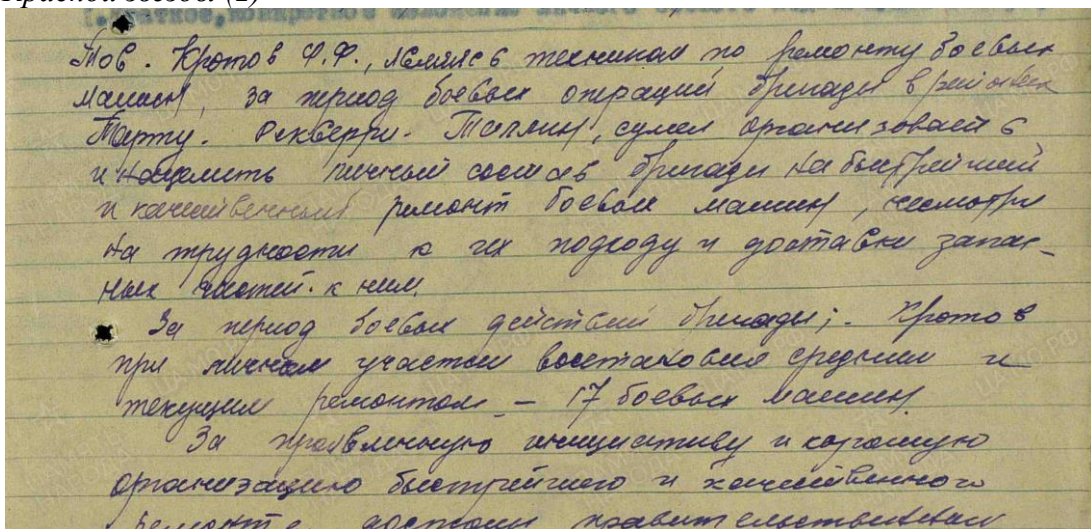 Красной звезды (2)
(краткое, конкретное изложение личного
Тов. Кротов Ф.Ф., являясь техником по ремонту боевых
машин, за период боевых операций бригады в районах
Тарту. Раквере. Таллин, сумел организовать
и нацелить личный состав бригады на быстрейший
и качественный ремонт боевых машин, несмотря
на трудности к их подходу и доставки запас-
ных частей к ним.
За период боевых действий бригады т. Кротов
при личном участии восстановил средним и
текущим ремонтом – 17 боевых машин.
За проявленную инициативу и хорошую
организацию быстрейшего и качественного
ремонта достоин правительственной